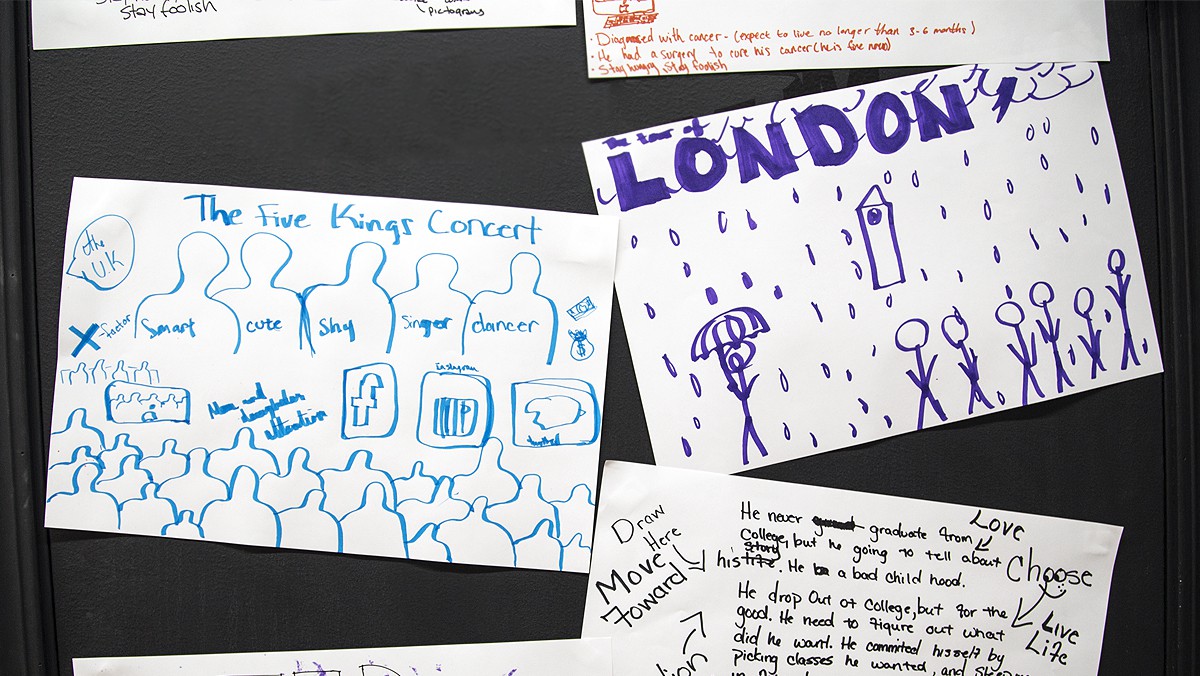 Stay foolish
pictograms
Diagnosed with cancer - (expect to live no longer than 3-6 months)
He had a surgery to cure his cancer (he is fine now)
Stay hungry Stay foolish
LONDON
The Five Kings Concert
the
U.K
X-factor
Smart
cute
Shy
Singer
dancer
$
f
Instagram
Draw
Here
Move
Foward
He never graduate from
College, but he going to tell about
story
his life. He a bad child hood.
He drop Out of College, but for the
good. He need to figure out what
did he want. He commited hisself by
picking classes he wanted, and
Love
Choose
Live
Life